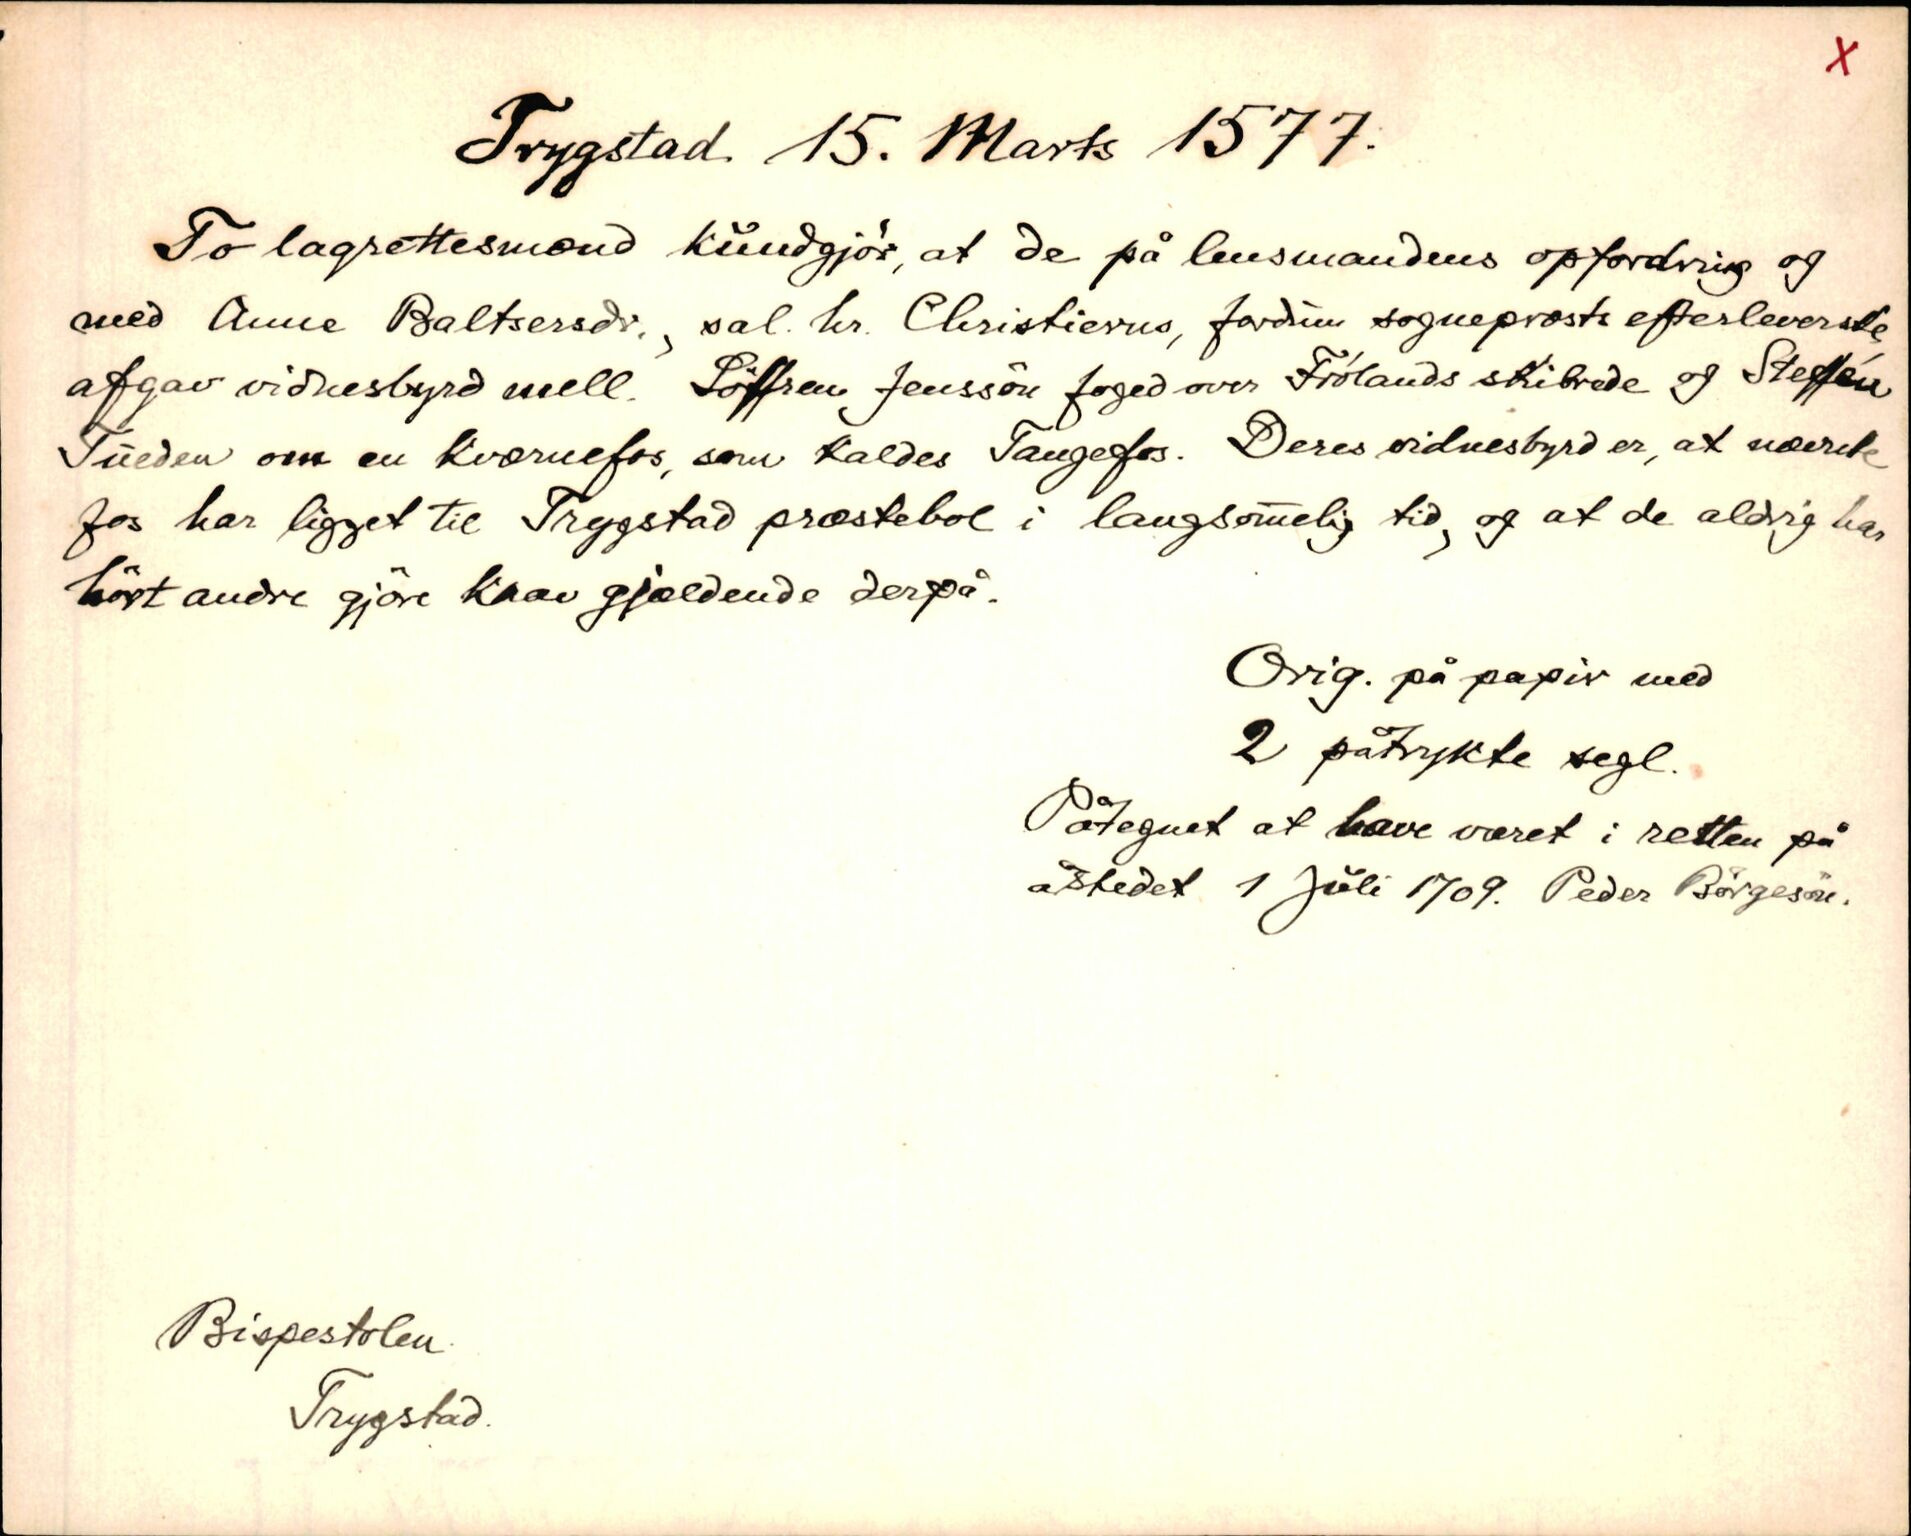 X
Trygstad 15. Marts 1577.
To lagrettesmænd kundgjör, at de på lensmandens opfordring og
med Anne Baltsersdr., sal. hr. Christierns, fordum sogneprests efterleverske,
afgav vidnesbyrd mell. Löffrens Jenssön foged over Frölands skibrede og Steffen
Tueden om en kværnefos, som kaldes Tangefos. Deres vidnesbyrd er, at nævnte
fos har ligget til Trygstad præstebol i langsom̅elig tid, og at de aldrig har
hört andre gjöre krav gjældende derpå.
Orig. på papir med
2 påtrykte segl.
Påtegnet at have været i retten på
åstedet 1 Juli 1709. Peder Börgesön.
Bispestolen.
Trygstad.